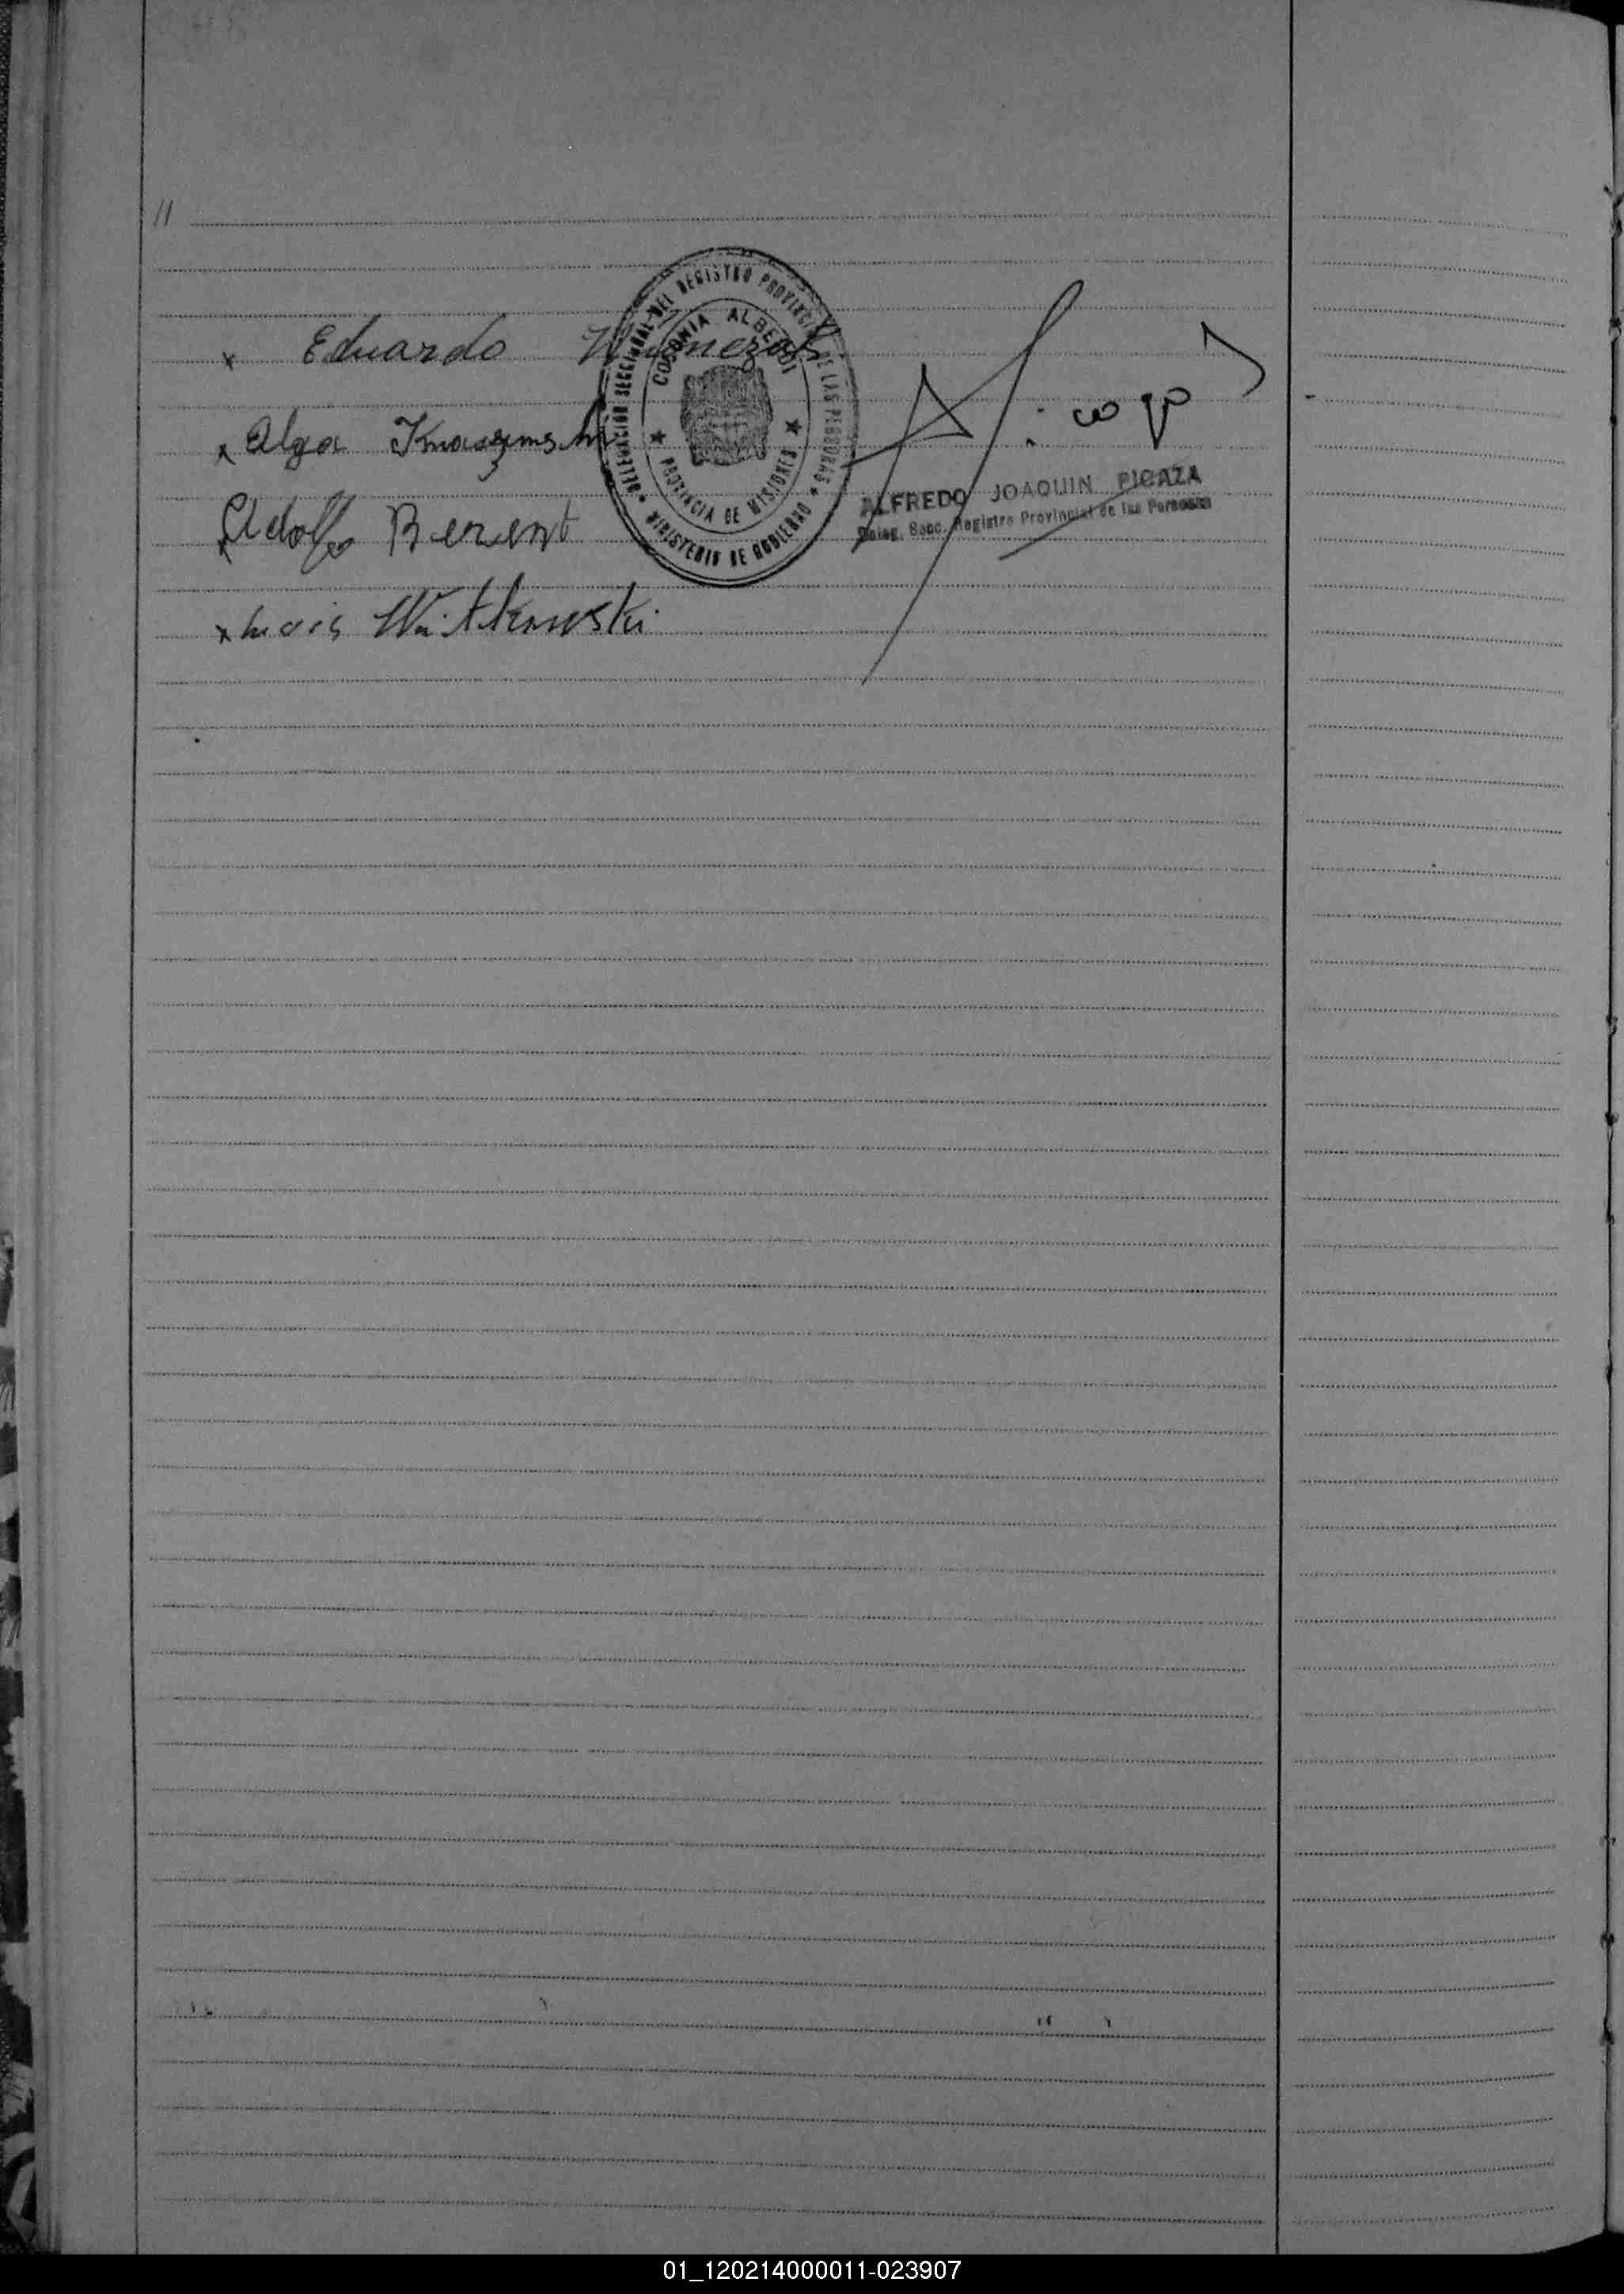 11
x Eduardo
x Olga
x Adolfo Berent
x Luis Witkowski
DELEGACIÓN SECCIONAL DEL REGISTRO PROVINCIAL DE LAS PERSONAS
★ MINISTERIO DE GOBIERNO ★
COLONIA ALBERDI
★ PROVINCIA DE MISIONES ★
ALFREDO JOAQUIN PICAZA
Deleg. Secc. Registro Provincial de las Personas
01_120214000011-023907